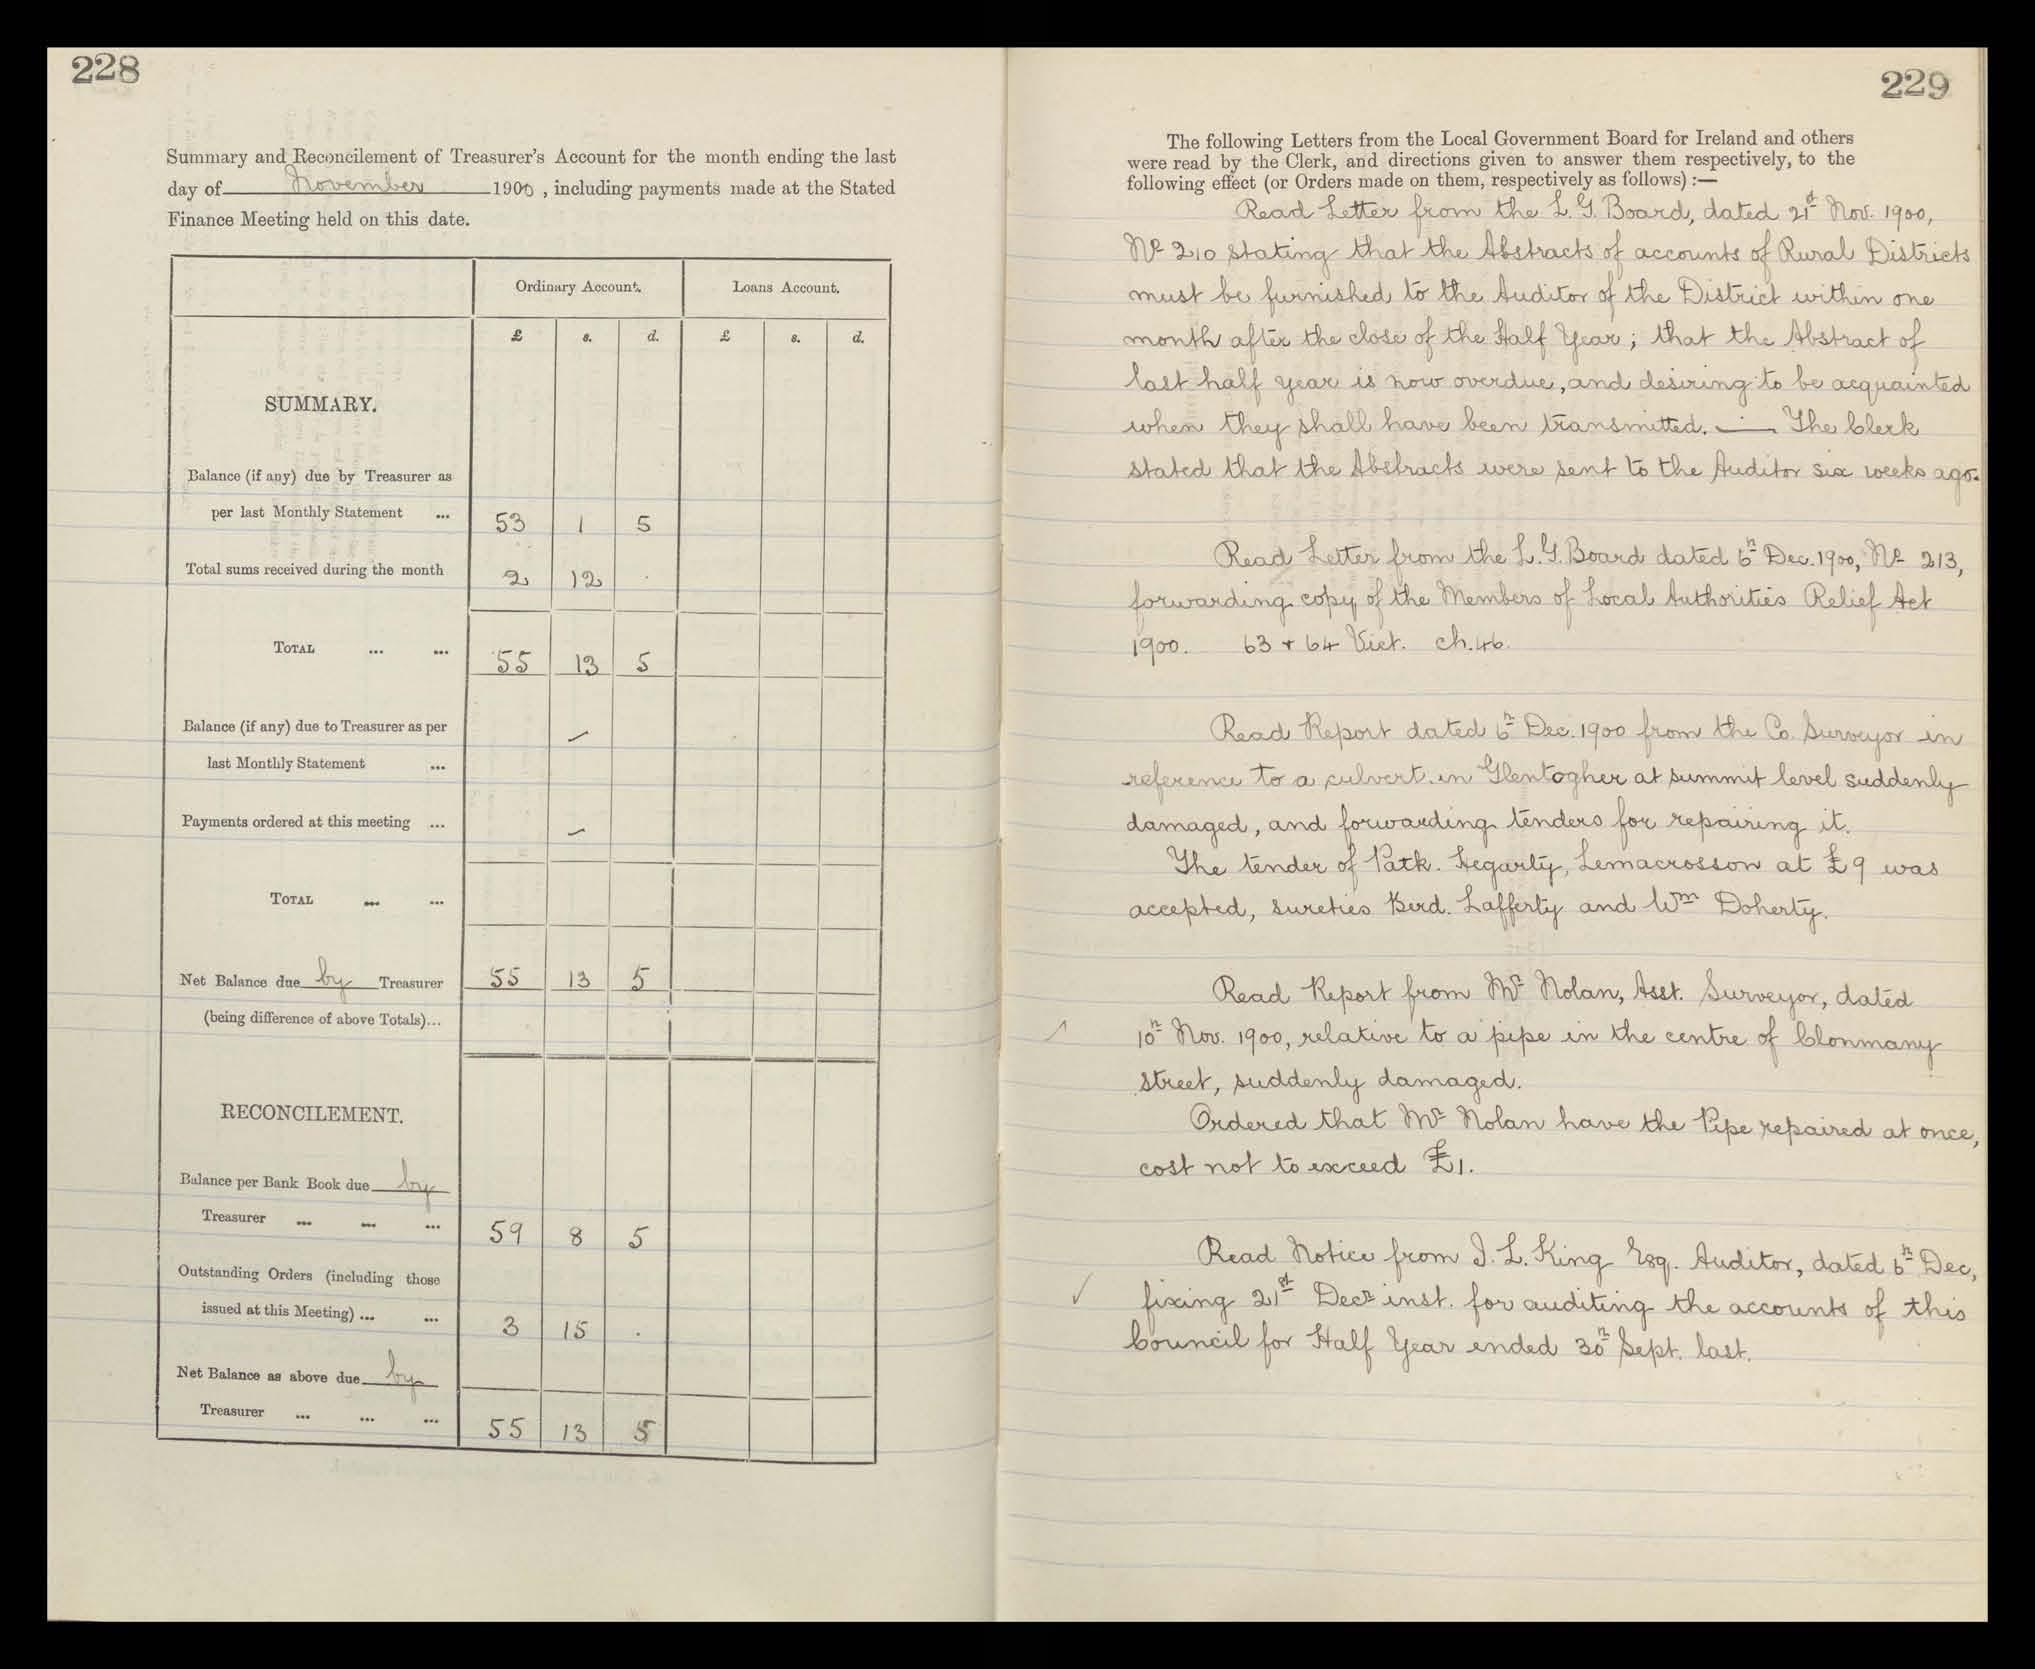 228
Summary and Reconcilement of Treasurer's Account for the month ending the last
day of November 1900, including payments made at the Stated
Finance Meeting held on this date.
Ordinary Account. Loans Account.
£ s. d. £ s. d.
SUMMARY.
Balance (if any) due by Treasurer as
per last Monthly Statement ... 53 1 5
Total sums received during the month 2 12 .
TOTAL ... ... 55 13 5
Balance (if any) due to Treasurer as per
last Monthly Statement ...
Payments ordered at this meeting ...
TOTAL ... ...
Net Balance due by Treasurer 55 13 5
(being difference of above Totals)...
RECONCILEMENT.
Balance per Bank Book due by
Treasurer ... ... ... 59 8 5
Outstanding Orders (including those
issued at this Meeting) ... ... 3 15 .
Net Balance as above due by
Treasurer ... ... ... 55 13 5
229
The following Letters from the Local Government Board for Ireland and others
were read by the Clerk, and directions given to answer them respectively, to the
following effect (or Orders made on them, respectively as follows) :—
Read Letter from the L. G. Board, dated 21st Nov. 1900,
No 210 stating that the Abstracts of accounts of Rural Districts
must be furnished to the Auditor of the District within one
month after the close of the Half Year; that the Abstract of
last half year is now overdue, and desiring to be acquainted
when they shall have been transmitted. — The Clerk
stated that the Abstracts were sent to the Auditor six weeks ago.
Read Letter from the L. G. Board dated 6th Dec. 1900, No 213,
forwarding copy of the Members of Local Authorities Relief Act
1900. 63 + 64 Vict. ch. 46.
Read Report dated 6th Dec. 1900 from the Co. Surveyor in
reference to a culvert in Glentogher at summit level suddenly
damaged, and forwarding tenders for repairing it.
The tender of Patk. Hegarty, Lemacrosson at £9 was
accepted, sureties Berd. Lafferty and Wm Doherty.
Read Report from Mr Nolan, Asst. Surveyor, dated
10th Nov. 1900, relative to a pipe in the centre of Clonmany
street, suddenly damaged.
Ordered that Mr Nolan have the Pipe repaired at once,
cost not to exceed £1.
Read Notice from J. L. King Esq. Auditor, dated 6th Dec,
fixing 21st Decr inst. for auditing the accounts of this
Council for Half Year ended 30th Sept. last.